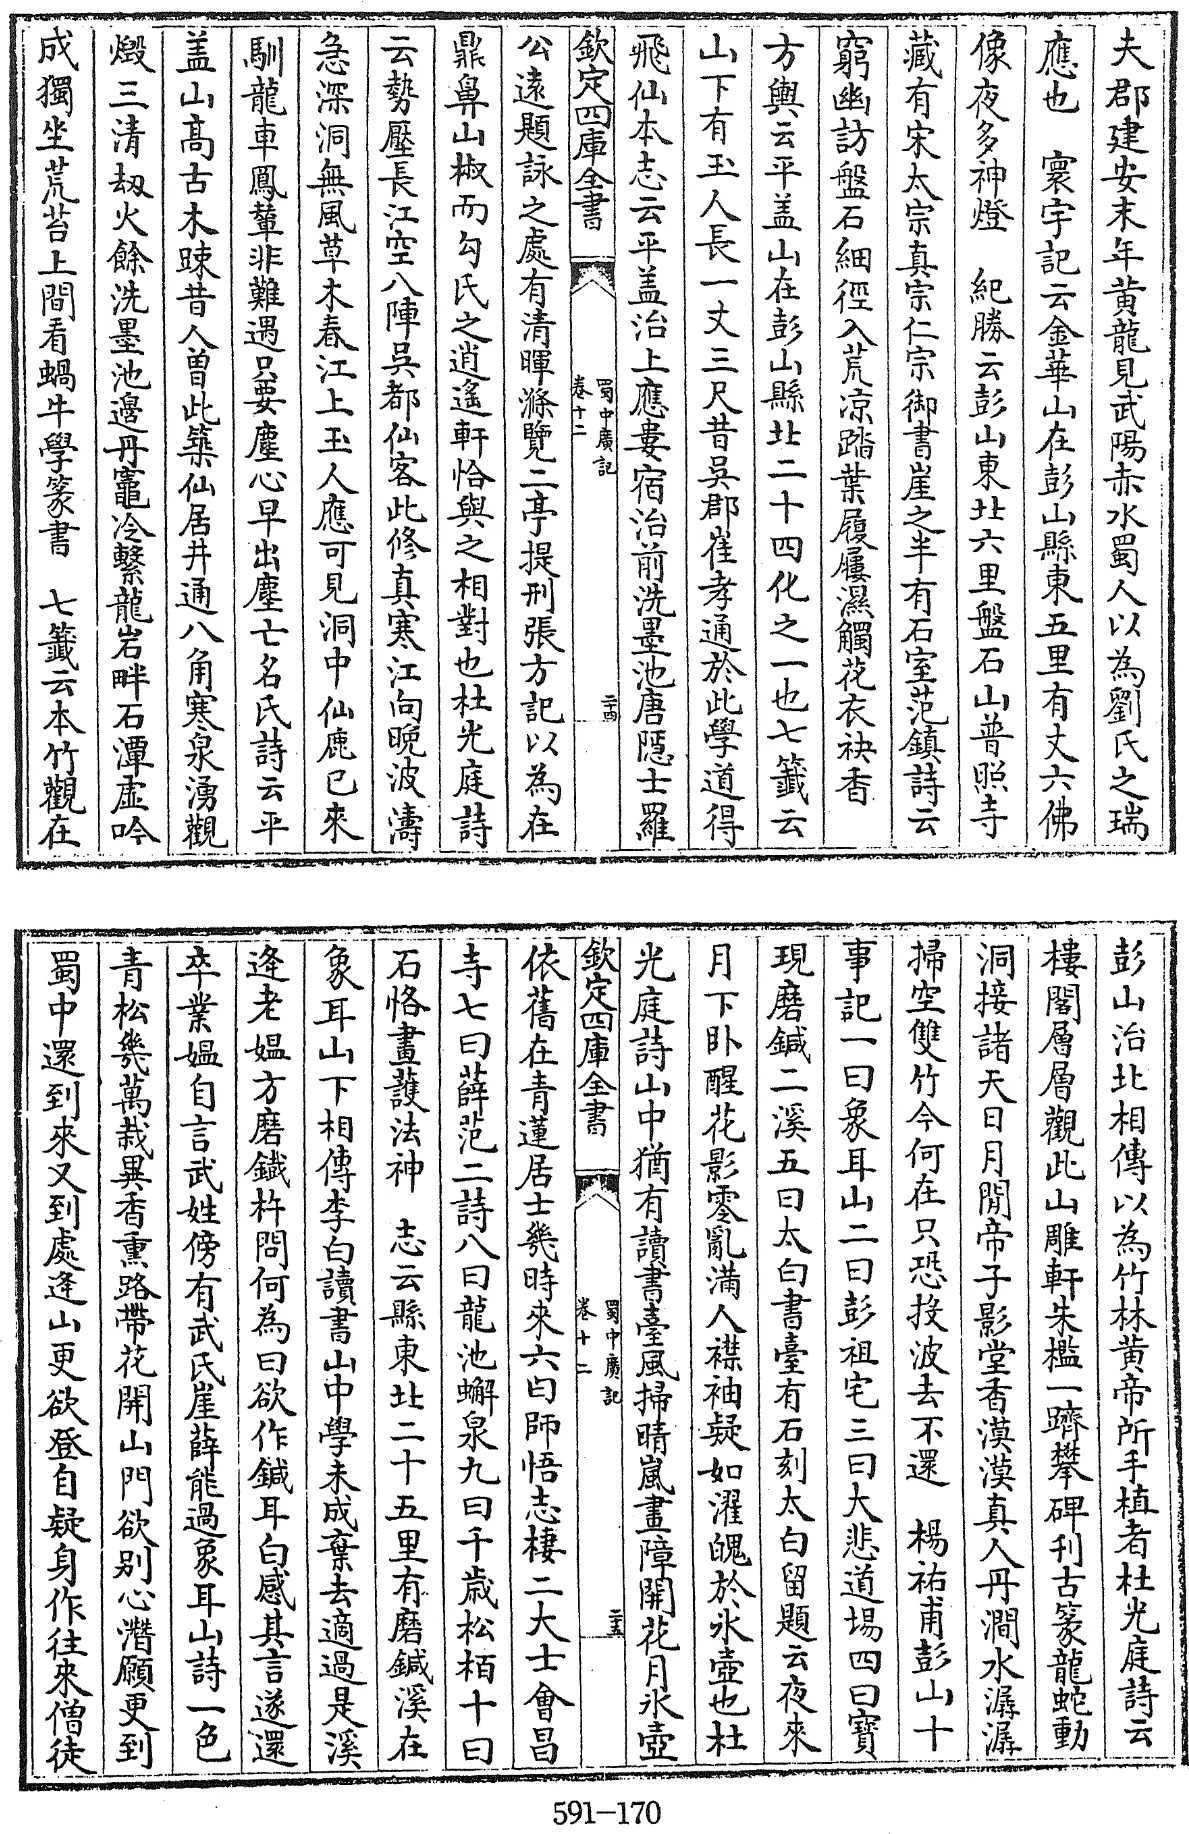 夫郡建安末年黄龍見武陽赤水蜀人以為劉氏之瑞
應也　寰宇記云金華山在彭山縣東五里有丈六佛
像夜多神燈　紀勝云彭山東北六里盤石山普照寺
藏有宋太宗真宗仁宗御書崖之半有石室范鎮詩云
窮幽訪盤石細徑入荒凉踏葉履屨濕觸花衣袂香
方輿云平盖山在彭山縣北二十四化之一也七籖云
山下有玉人長一丈三尺昔吳郡崔孝通於此學道得
飛仙本志云平盖治上應婁宿治前洗墨池唐隱士羅
欽定四庫全書
蜀中廣記
卷十二
二十四
公遠題詠之處有清暉滌覽二亭提刑張方記以為在
鼎鼻山椒而勾氏之逍遙軒恰與之相對也杜光庭詩
云勢壓長江空八陣吳都仙客此修真寒江向晚波濤
急深洞無風草木春江上玉人應可見洞中仙鹿已來
馴龍車鳳輦非難遇只要塵心早出塵亡名氏詩云平
盖山高古木踈昔人曽此築仙居井通八角寒泉湧觀
燬三清刼火餘洗墨池邊丹竈冷繫龍岩畔石潭虛吟
成獨坐荒苔上間看蝸牛學篆書　七籖云本竹觀在
彭山治北相傳以為竹林黄帝所手植者杜光庭詩云
樓閣層層觀此山雕軒朱檻一躋攀碑刋古篆龍蛇動
洞接諸天日月閒帝子影堂香漠漠真人丹澗水潺潺
掃空雙竹今何在只恐投波去不還　楊祐甫彭山十
事記一曰象耳山二曰彭祖宅三曰大悲道塲四曰寶
現磨鍼二溪五曰太白書臺有石刻太白留題云夜來
月下卧醒花影零亂滿人襟袖疑如濯魄於氷壺也杜
光庭詩山中猶有讀書臺風掃晴嵐畫障開花月氷壺
欽定四庫全書
蜀中廣記
卷十二
二十五
依舊在青蓮居士幾時來六曰師悟志棲二大士會昌
寺七曰薛范二詩八曰龍池蠏泉九曰千歳松栢十曰
石恪畫護法神　志云縣東北二十五里有磨鍼溪在
象耳山下相傳李白讀書山中學未成棄去適過是溪
逢老媪方磨鐵杵問何為曰欲作鍼耳白感其言遂還
卒業媪自言武姓傍有武氏崖薛能過象耳山詩一色
青松幾萬栽異香熏路帶花開山門欲别心潛願更到
蜀中還到來又到處逢山更欲登自疑身作往來僧徒
591-170